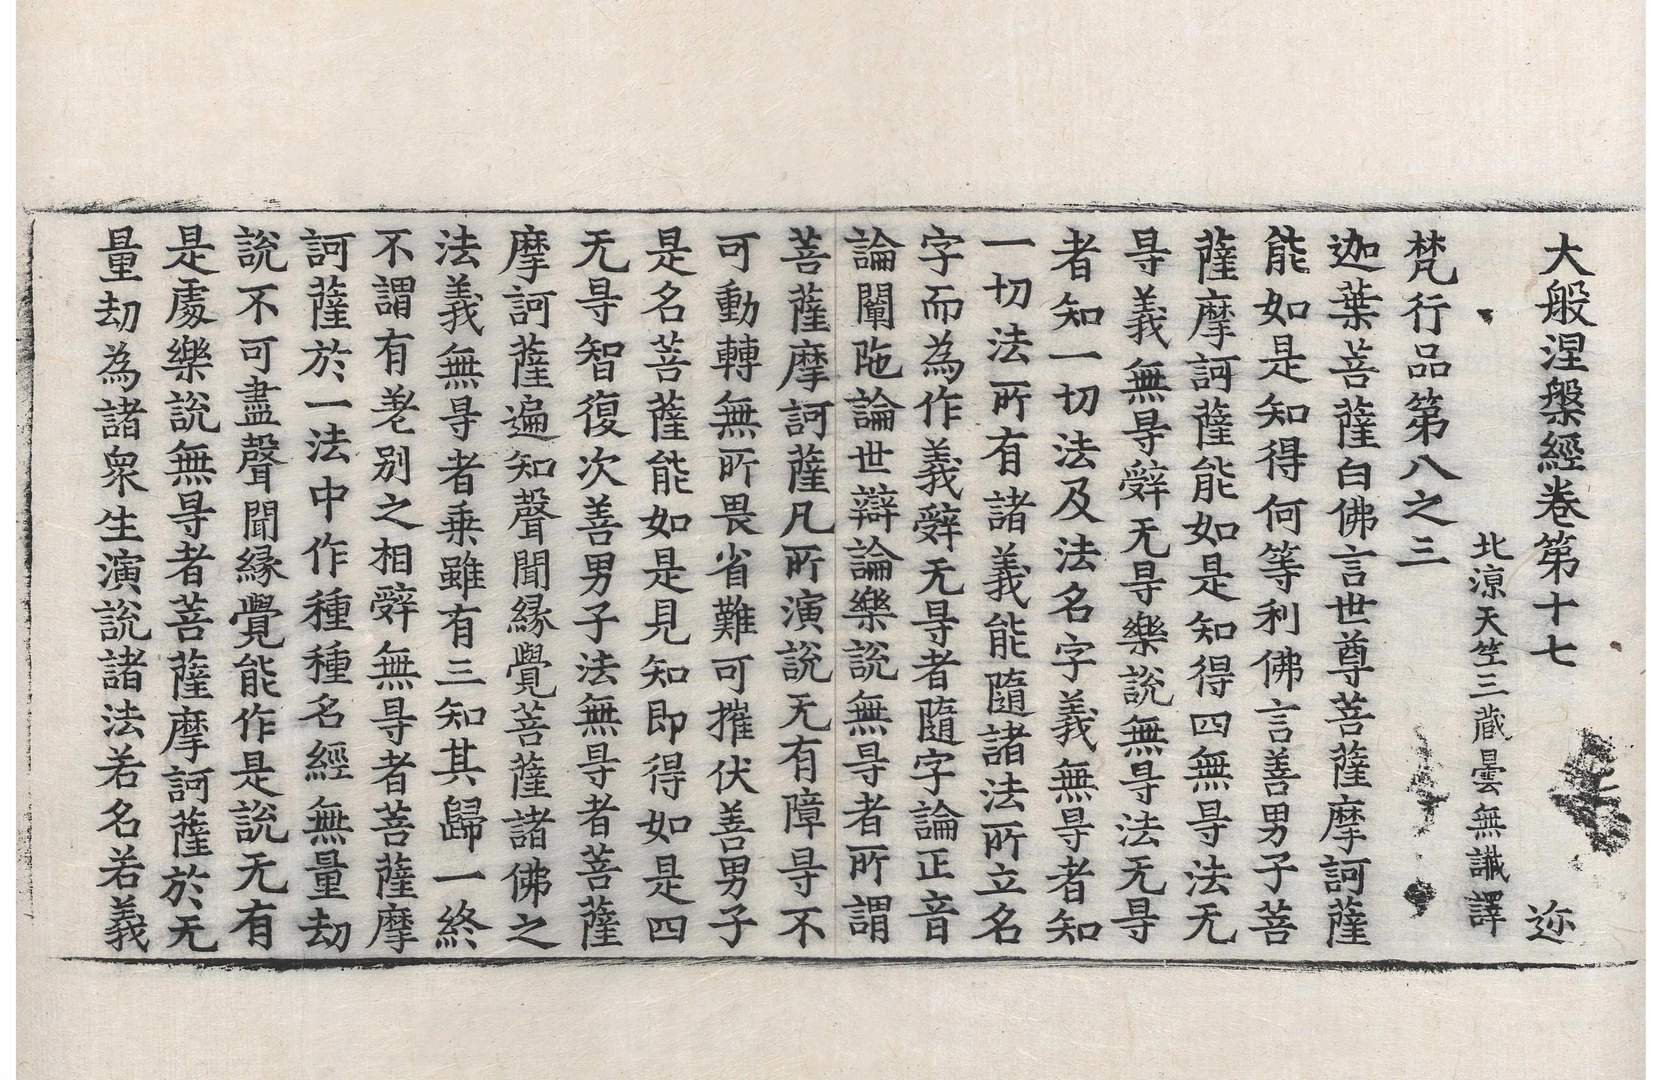 大般涅槃經卷第十七　迩
北涼天竺三藏曇無讖譯
梵行品第八之三
迦葉菩薩白佛言世尊菩薩摩訶薩
能如是知得何等利佛言善男子菩
薩摩訶薩能如是知得四無㝵法无
㝵義無㝵辭无㝵樂說無㝵法无㝵
者知一切法及法名字義無㝵者知
一切法所有諸義能隨諸法所立名
字而為作義辭无㝵者隨字論正音
論闡陁論世辯論樂說無㝵者所謂
菩薩摩訶薩凡所演說无有障㝵不
可動轉無所畏省難可摧伏善男子
是名菩薩能如是見知即得如是四
无㝵智復次善男子法無㝵者菩薩
摩訶薩遍知聲聞緣覺菩薩諸佛之
法義無㝵者乘雖有三知其歸一終
不謂有差別之相辭無㝵者菩薩摩
訶薩於一法中作種種名經無量劫
說不可盡聲聞緣覺能作是說无有
是處樂說無㝵者菩薩摩訶薩於无
量劫為諸衆生演說諸法若名若義